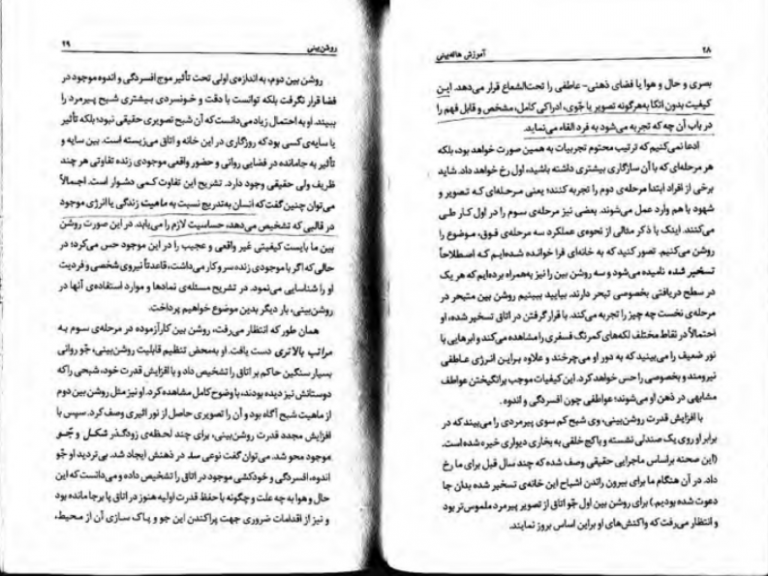 ۲۸
آموزش هاله‌بینی
بصری و حال و هوا یا فضای ذهنی- عاطفی را تحت‌الشعاع قرار می‌دهد. این
کیفیت بدون اتکا به‌هرگونه تصویر یا جّوی، ادراکی کامل، مشخص و قابل فهم را
در باب آن چه که تجربه می‌شود به فرد القاء می‌نماید.
ادعا نمی‌کنیم که ترتیب محتوم تجربیات به همین صورت خواهد بود، بلکه
هر مرحله‌ای که با آن سازگاری بیشتری داشته باشید، اول رخ خواهد داد. شاید
برخی از افراد ابتدا مرحله‌ی دوم را تجربه کنند؛ یعنی مرحله‌ای که تصویر و
شهود با هم وارد عمل می‌شوند. بعضی نیز مرحله‌ی سوم را در اول کار طی
می‌کنند. اینک با ذکر مثالی از نحوه‌ی عملکرد سه مرحله‌ی فوق، موضوع را
روشن می‌کنیم. تصور کنید که به خانه‌ای فرا خوانده شده‌ایم که اصطلاحاً
تسخیر شده نامیده می‌شود و سه روشن بین را نیز به‌همراه برده‌ایم که هر یک
در سطح دریافتی بخصوصی تبحر دارند. بیایید ببینیم روشن بین متبحر در
مرحله‌ی نخست چه چیز را تجربه می‌کند. با قرار گرفتن در اتاق تسخیر شده، او
احتمالاً در نقاط مختلف لکه‌های کمرنگ فسفری را مشاهده می‌کند و ابرهایی با
نور ضعیف را می‌بینید که به دور او می‌چرخند و علاوه براین انرژی عاطفی
نیرومند و بخصوصی را حس خواهد کرد. این کیفیات موجب برانگیختن عواطف
مشابهی در ذهن او می‌شوند؛ عواطفی چون افسردگی و اندوه.
با افزایش قدرت روشن‌بینی، وی شبح کم سوی پیرمردی را می‌بیند که در
برابر او روی یک صندلی نشسته و با کج خلقی به بخاری دیواری خیره شده است.
(این صحنه براساس ماجرایی حقیقی وصف شده که چند سال قبل برای ما رخ
داد. در آن هنگام ما برای بیرون راندن اشباح این خانه‌ی تسخیر شده بدان جا
دعوت شده بودیم.) برای روشن بین اول جّو اتاق از تصویر پیرمرد ملموس‌تر بود
و انتظار می‌رفت که واکنش‌های او براین اساس بروز نمایند.
روشن‌بینی
۲۹
روشن بین دوم، به اندازه‌ی اولی تحت تأثیر موج افسردگی و اندوه موجود در
فضا قرار نگرفت بلکه توانست با دقت و خونسردی بیشتری شبح پیرمرد را
ببیند. او به احتمال زیاد می‌دانست که آن شبح تصویری حقیقی نبود؛ بلکه تأثیر
یا سایه‌ی کسی بود که روزگاری در این خانه و اتاق می‌زیسته است. بین سایه و
تأثیر به جامانده در فضایی روانی و حضور واقعی موجودی زنده تفاوتی هر چند
ظریف ولی حقیقی وجود دارد. تشریح این تفاوت کمی دشوار است. اجمالاً
می‌توان چنین گفت که انسان به‌تدریج نسبت به ماهیت زندگی یا انرژی موجود
در قالبی که تشخیص می‌دهد، حساسیت لازم را می‌یابد. در این صورت روشن
بین ما بایست کیفیتی غیر واقعی و عجیب را در این موجود حس می‌کرد؛ در
حالی که اگر با موجودی زنده سر و کار می‌داشت، قاعدتاً نیروی شخصی و فردیت
او را شناسایی می‌نمود. در تشریح مسئله‌ی نمادها و موارد استفاده‌ی آنها در
روشن‌بینی، بار دیگر بدین موضوع خواهیم پرداخت.
همان طور که انتظار می‌رفت، روشن بین کارآزموده در مرحله‌ی سوم به
مراتب بالاتری دست یافت. او به‌محض تنظیم قابلیت روشن‌بینی، جّو روانی
بسیار سنگین حاکم بر اتاق را تشخیص داد و با افزایش قدرت خود، شبحی را که
دوستانش نیز دیده بودند، با وضوح کامل مشاهده کرد. او نیز مثل روشن بین دوم
از ماهیت شبح آگاه بود و آن را تصویری حاصل از نور اثیری وصف کرد. سپس با
افزایش مجدد قدرت روشن‌بینی، برای چند لحظه‌ی زودگذر شکل و جّو
موجود محو شد. می‌توان گفت نوعی سد در ذهنش ایجاد شد. بی‌تردید او جّو
اندوه، افسردگی و خودکشی موجود در اتاق را تشخیص داده و می‌دانست که این
حال و هوا به چه علت و چگونه با حفظ قدرت اولیه هنوز در اتاق پا برجا مانده بود
و نیز از اقدامات ضروری جهت پراکندن این جو و پاک سازی آن از محیط،